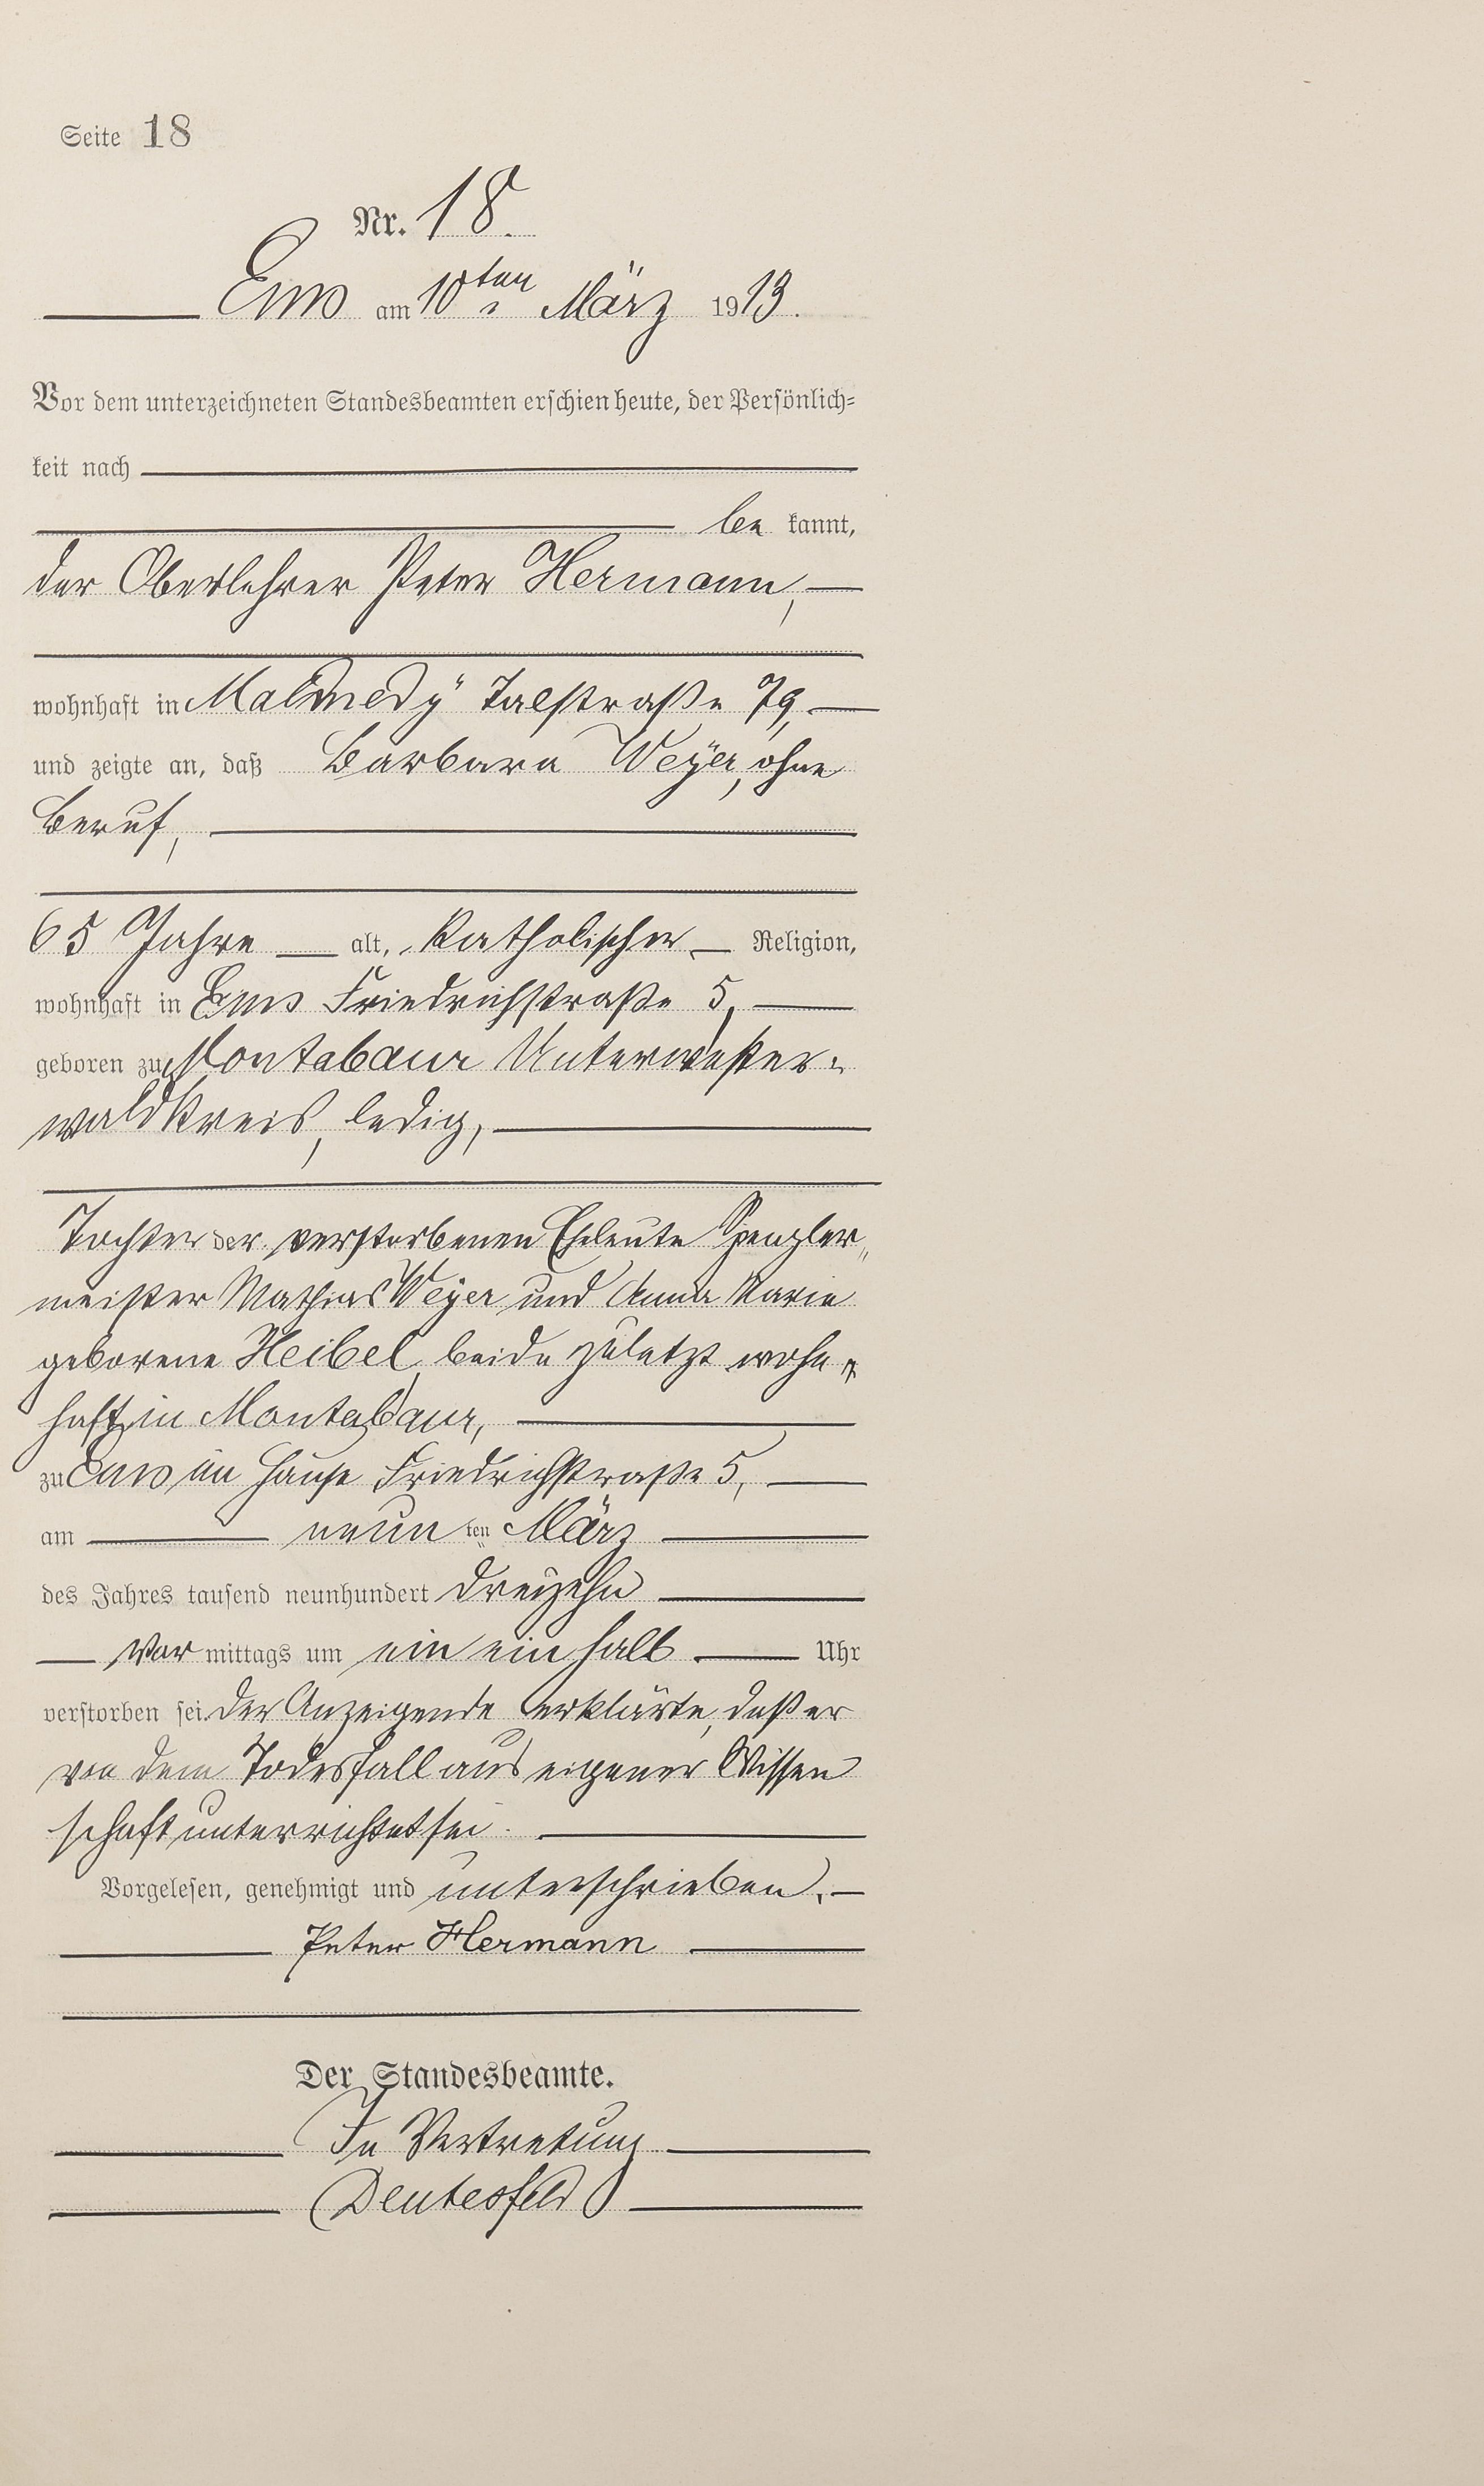 Seite 18
Nr. 18.
Ems am 10ten März 1913.
Vor dem unterzeichneten Standesbeamten erschien heute, der Persönlich-
keit nach
be kannt,
der Oberlehrer Peter Hermann,
wohnhaft in Malmedy Talstraße 79,
und zeigte an, daß Barbara Weyer, ohne
Beruf,
65 Jahre alt, Katholischer Religion,
wohnhaft in Ems Friedrichstraße 5,
geboren zu Montabaur Unterwester-
waldkreis, ledig,
Tochter der verstorbenen Eheleute Spengler-
meister Mathias Weyer und Anna Marie
geborene Heibel, beide zuletzt wohn-
haft in Montabaur,
zu Ems im Hause Friedrichstraße 5,
am neun ten März
des Jahres tausend neunhundert dreizehn
Vor mittags um ein ein halb Uhr
verstorben sei. Der Anzeigende erklärte, daß er
von dem Todesfall aus eigener Wissen
schaft unterrichtet sei.
Vorgelesen, genehmigt und unterschrieben.
Peter Hermann
Der Standesbeamte.
In Vertretung